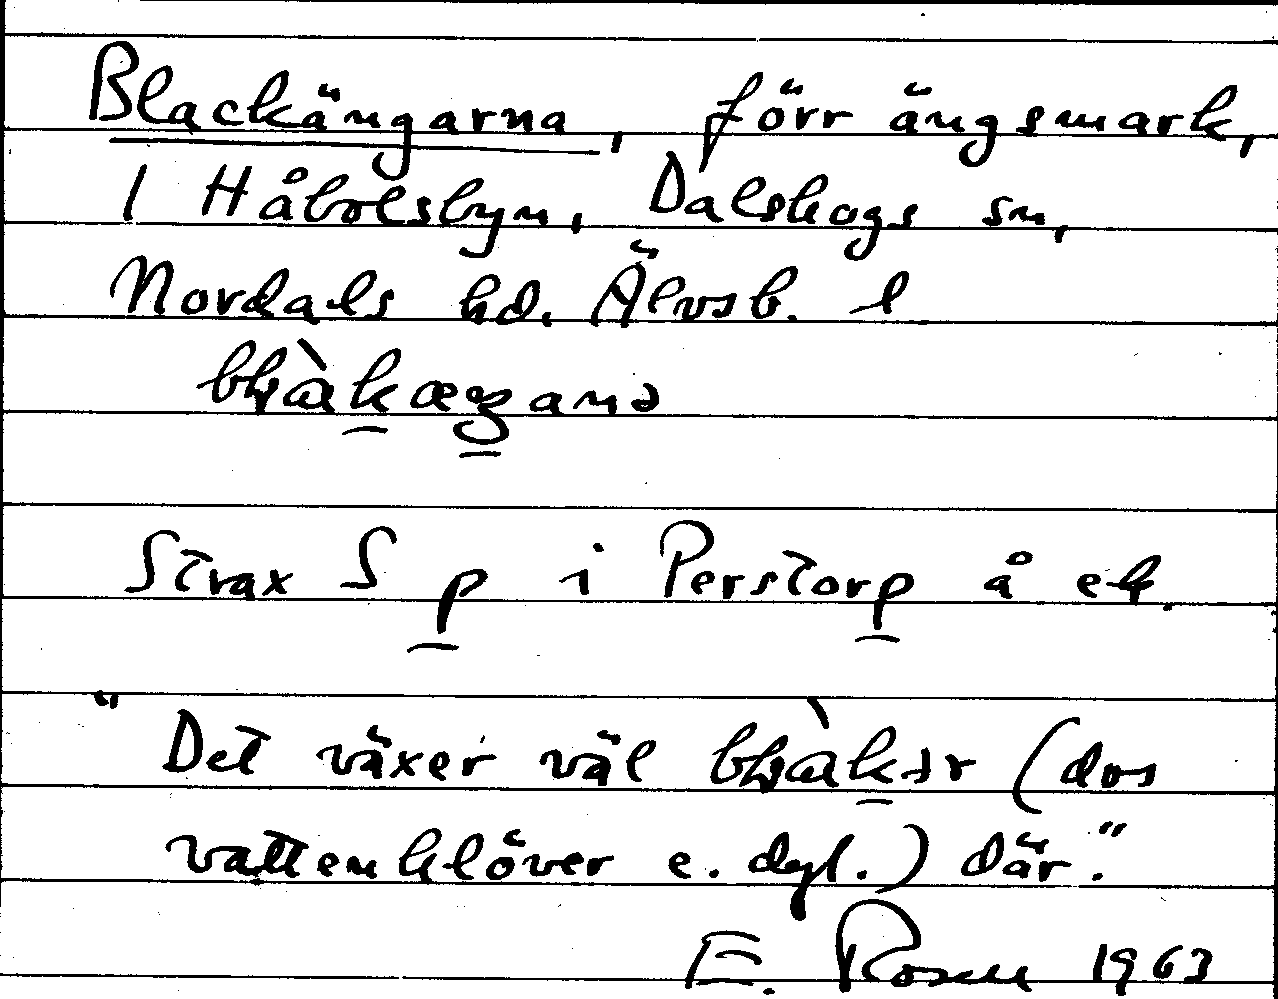 Blackängarna, förr ängsmark,
i Håbolsbyn, Dalskogs sn,
Nordals hd. Älvsb. l
Strax S p i Perstorp å ek.
"Det växer väl (dvs
vattenklöver e. dyl.) där."
E. Rosen 1963